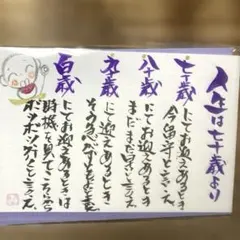 人生は七十歳より
七十歳
にてお迎えあるときは
今留守と言え
八十歳
にてお迎えあるときは
まだまだ早いと言え
九十歳
にてお迎えあるときは
そう急がずともよいと言え
百歳
にてお迎えあるときは
時機を見てこちらから
ボツボツ行くと言え